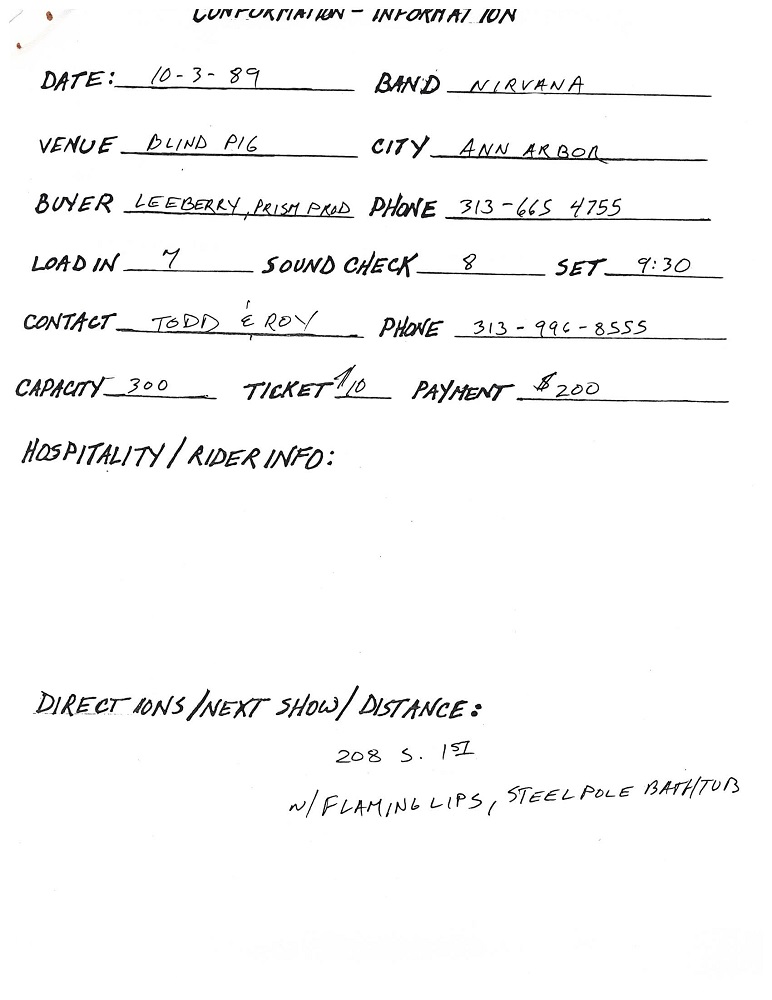 CONFORMATION - INFORMATION
DATE: 10-3-89 BAND NIRVANA
VENUE BLIND PIG CITY ANN ARBOR
BUYER LEEBERRY, PRISM PROD PHONE 313-665 4755
LOAD IN 7 SOUND CHECK 8 SET 9:30
CONTACT TODD & ROY PHONE 313-996-8555
CAPACITY 300 TICKET $10 PAYMENT $200
HOSPITALITY/RIDER INFO:
DIRECTIONS/NEXT SHOW/DISTANCE:
208 S. 1ST
W/FLAMING LIPS, STEELPOLE BATHTUB